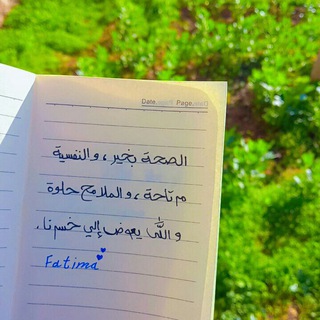 Date. Page.
الصحة بخير، والنفسية
مرتاحة، والملامح حلوة
و اللّٰه يعوض إلي خسرنا.
Fatima